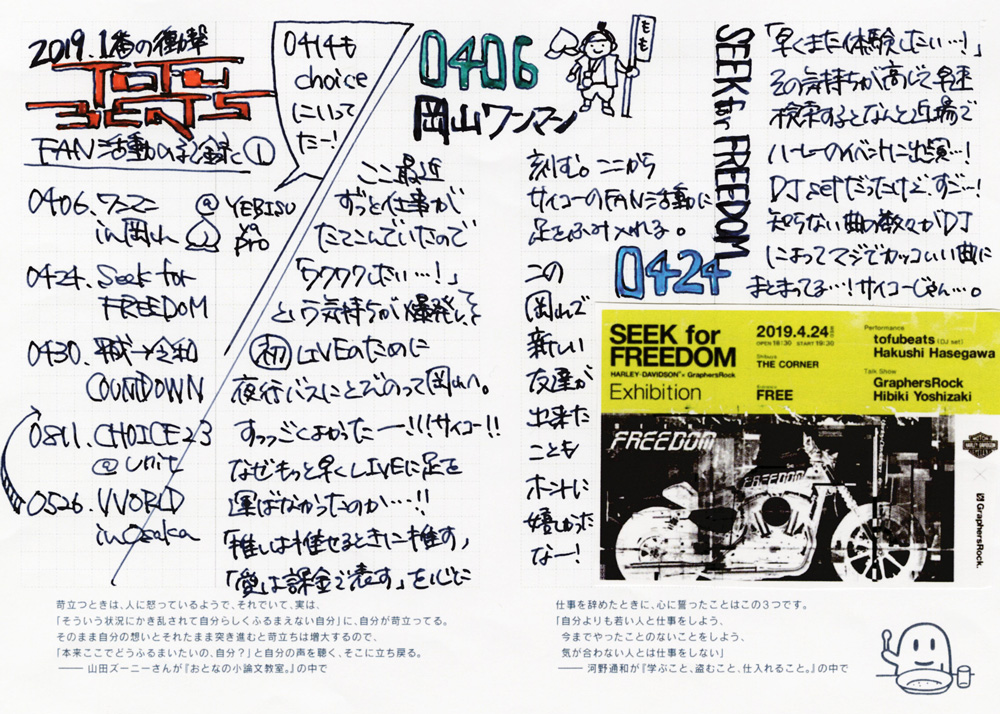 2019.1番の衝撃
TOFU
BEATS
FAN活動の記録①
0406.ワンマン
in岡山
@YEBISU
YA
PRO
0424.Seek for
FREEDOM
0430.平成→令和
COUNTDOWN
0811.CHOICE23
@unit
0526.WORLD
inOsaka
0414も
choice
にいって
たー!
0406
岡山ワンマン
もも
ここ最近
ずっと仕事が
たてこんでいたので
「ワクワクしたい…!」
という気持ちが爆発して
初LIVEのために
夜行バスにとびのって岡山へ。
すっっごくよかったー!!!サイコー!!
なぜもっと早くLIVEに足を
運ばなかったのか…!!
「推しは推せるときに推す」
「愛は課金で表す」を心に
刻む。ここから
サイコーのFAN活動に
足をふみ入れる。
この
岡山で
新しい
友達が
出来た
ことも
ホントに
嬉しかった
なー!
SEEK for FREEDOM
0424
「早くまた体験したい…!」
その気持ちが高じて早速
検索するとなんと近場で
ハーレーのイベントに出演…!
DJ setだったけど、すご…!
知らない曲の数々がDJ
によってマジでカッコいい曲に
まとまってる…!サイコーじゃん…。
SEEK for
FREEDOM
HARLEY-DAVIDSON® × GraphersRock
Exhibition
2019.4.24
OPEN 18:30 START 19:30
THE CORNER
Entrance
FREE
Performance
tofubeats (DJ set)
Hakushi Hasegawa
Talk Show
GraphersRock
Hibiki Yoshizaki
FREEDOM
FREEDOM
HARLEY-DAVIDSON
×
GraphersRock.
苛立つときは、人に怒っているようで、それでいて、実は、
「そういう状況にかき乱されて自分らしくふるまえない自分」に、自分が苛立ってる。
そのまま自分の想いとそれたまま突き進むと苛立ちは増大するので、
「本来ここでどうふるまいたいの、自分?」と自分の声を聴く、そこに立ち戻る。
―― 山田ズーニーさんが『おとなの小論文教室。』の中で
仕事を辞めたときに、心に誓ったことはこの3つです。
「自分よりも若い人と仕事をしよう、
今までやったことのないことをしよう、
気が合わない人とは仕事をしない」
―― 河野通和が『学ぶこと、盗むこと、仕入れること。』の中で